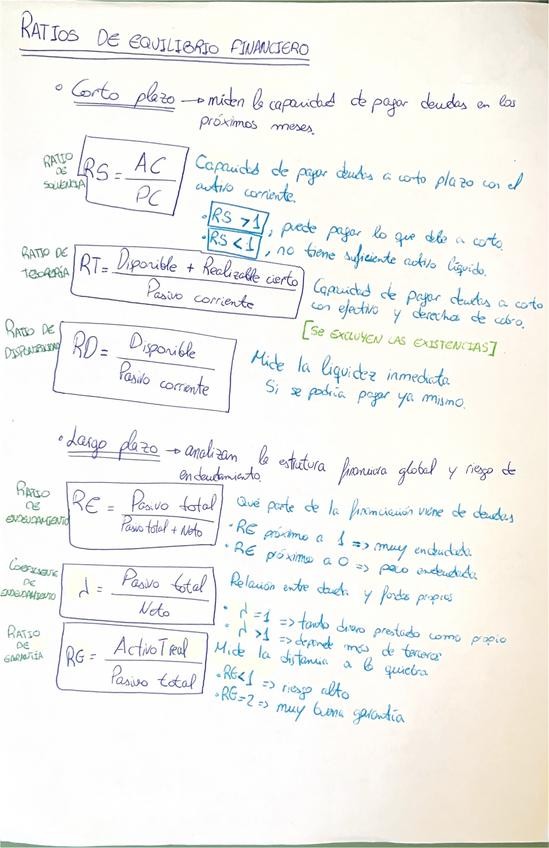 RATIOS DE EQUILIBRIO FINANCIERO
• Corto plazo → miden la capacidad de pagar deudas en los
próximos meses.
RATIO DE SOLVENCIA
RS = AC / PC
Capacidad de pagar deudas a corto plazo con el
activo corriente.
• RS > 1, puede pagar lo que debe a corto.
• RS < 1, no tiene suficiente activo líquido.
RATIO DE TESORERÍA
RT = Disponible + Realizable cierto / Pasivo corriente
Capacidad de pagar deudas a corto
con efectivo y derechos de cobro.
[SE EXCLUYEN LAS EXISTENCIAS]
RATIO DE DISPONIBILIDAD
RD = Disponible / Pasivo corriente
Mide la liquidez inmediata
Si se podría pagar ya mismo.
• Largo plazo → analizan la estrutura financiera global y riesgo de
endeudamiento.
RATIO DE ENDEUDAMIENTO
RE = Pasivo total / Pasivo total + Neto
Qué parte de la financiación viene de deudas
• RE próximo a 1 => muy endeudada
• RE próximo a 0 => poco endeudada
COEFICIENTE DE ENDEUDAMIENTO
λ = Pasivo total / Neto
Relación entre deuda y fondos propios
• λ = 1 => tanto dinero prestado como propio
• λ > 1 => depende más de terceros
RATIO DE GARANTÍA
RG = Activo T real / Pasivo total
Mide la distancia a la quiebra
• RG < 1 => riesgo alto
• RG = 2 => muy buena garantía